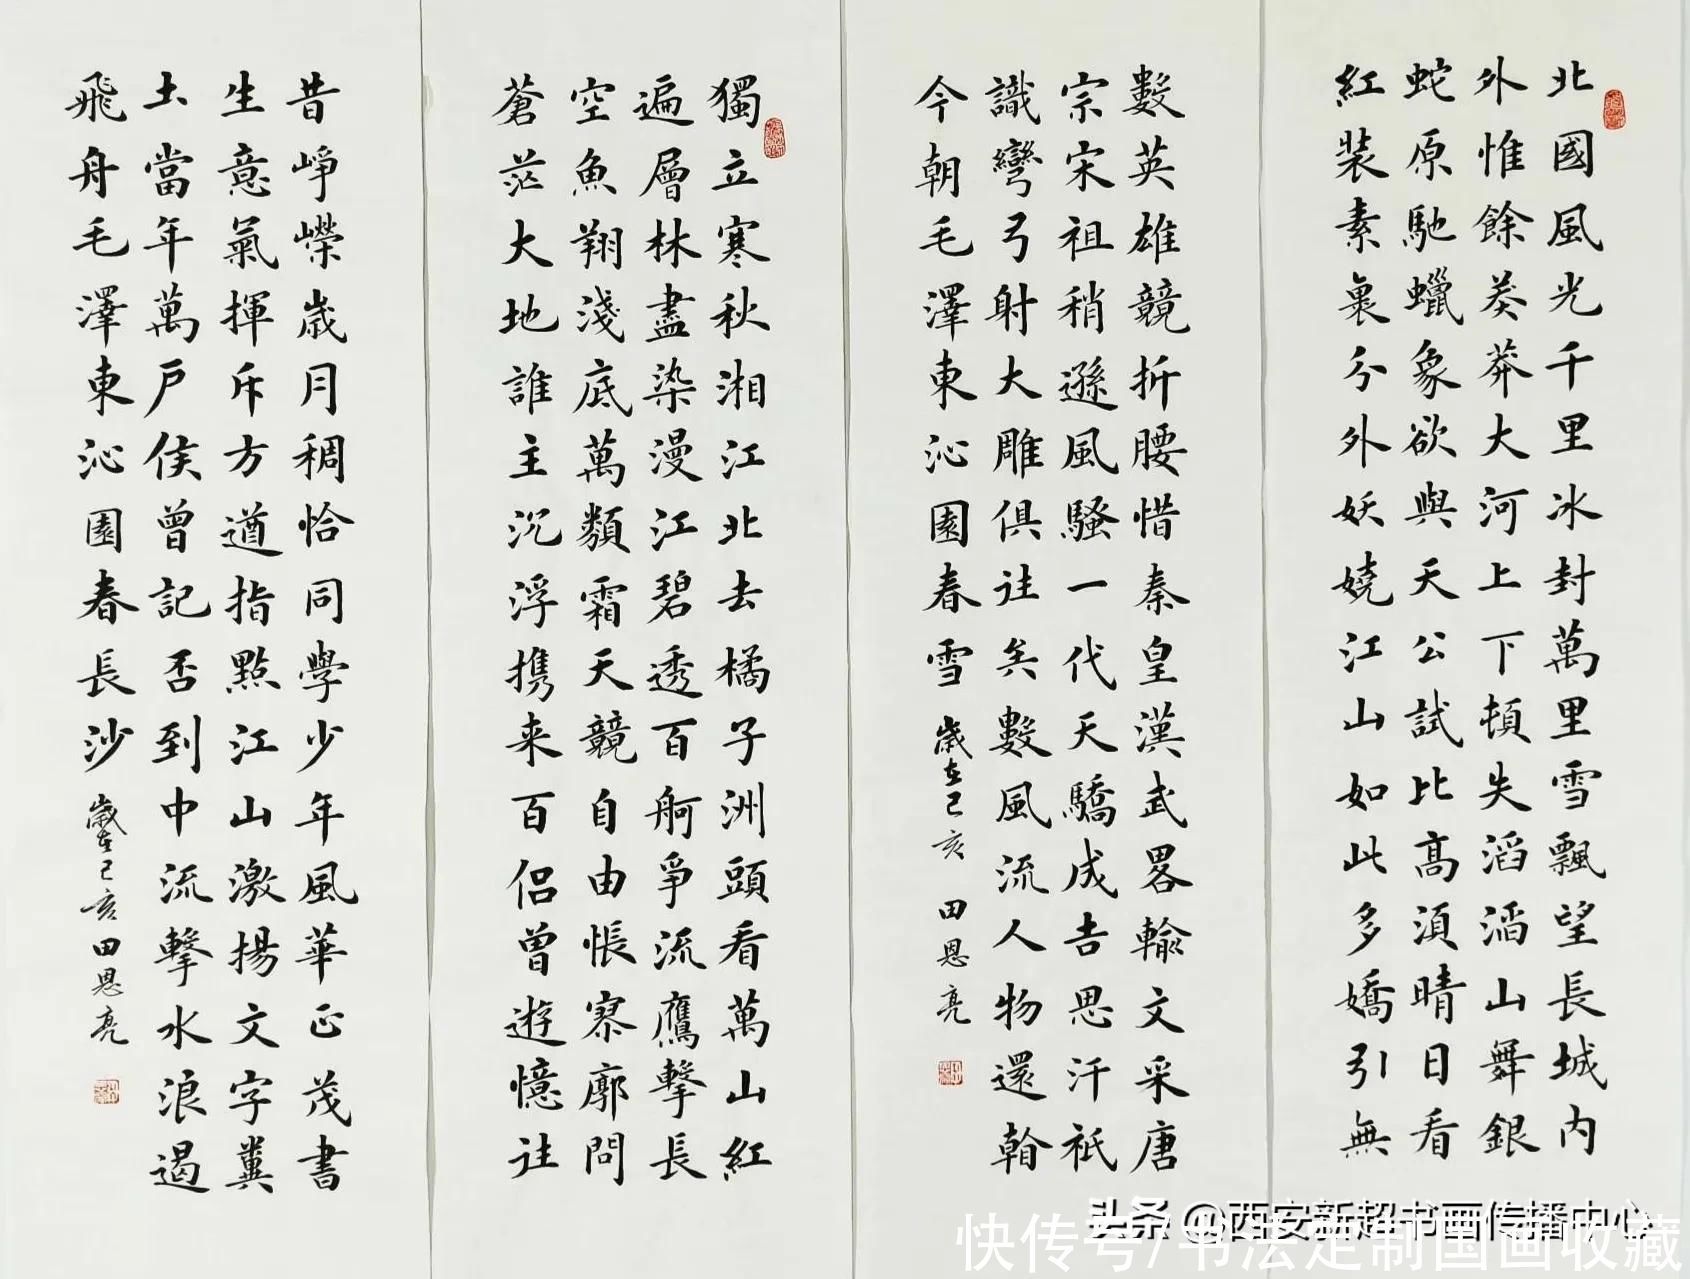 北國風光千里冰封萬里雪飄望長城內
外惟餘莽莽大河上下頓失滔滔山舞銀
蛇原馳蠟象欲與天公試比高須晴日看
紅裝素裹分外妖嬈江山如此多嬌引無
數英雄競折腰惜秦皇漢武畧輸文采唐
宗宋祖稍遜風騷一代天驕成吉思汗祇
識彎弓射大雕俱往矣數風流人物還看
今朝毛澤東沁園春雪 歲在己亥 田恩亮
獨立寒秋湘江北去橘子洲頭看萬山紅
遍層林盡染漫江碧透百舸爭流鷹擊長
空魚翔淺底萬類霜天競自由悵寥廓問
蒼茫大地誰主沉浮携来百侶曾遊憶往
昔崢嶸歲月稠恰同學少年風華正茂書
生意氣揮斥方遒指點江山激揚文字糞
土當年萬戶侯曾記否到中流擊水浪遏
飛舟毛澤東沁園春長沙 歲在己亥田恩亮
头条 @西安新超书画传播中心
快传号/书法定制国画收藏